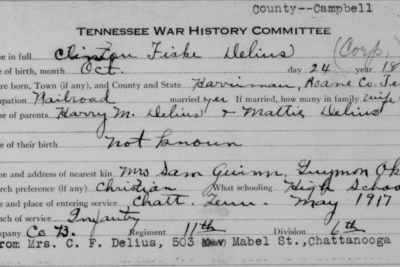 County--Campbell
TENNESSEE WAR HISTORY COMMITTEE
me in full Clinton Fiske Delius (Corp.)
e of birth, month Oct. day 24 year 18
ere born, Town (if any), and County and State Harriman, Roane Co. Te
upation Railroad married yes If married, how many in family wife
e of parents Harry M. Delius & Mattie Delius
e of their birth not known
me and address of nearest kin Mrs Sam Guinn, Guymon Ok
rch preference (if any) Christian What schooling High School
e and place of entering service Chatt. Tenn. May 1917
nch of service Infanty
pany Co B. Regiment 11th Division 6th
rom Mrs. C. F. Delius, 503 Mabel St., Chattanooga